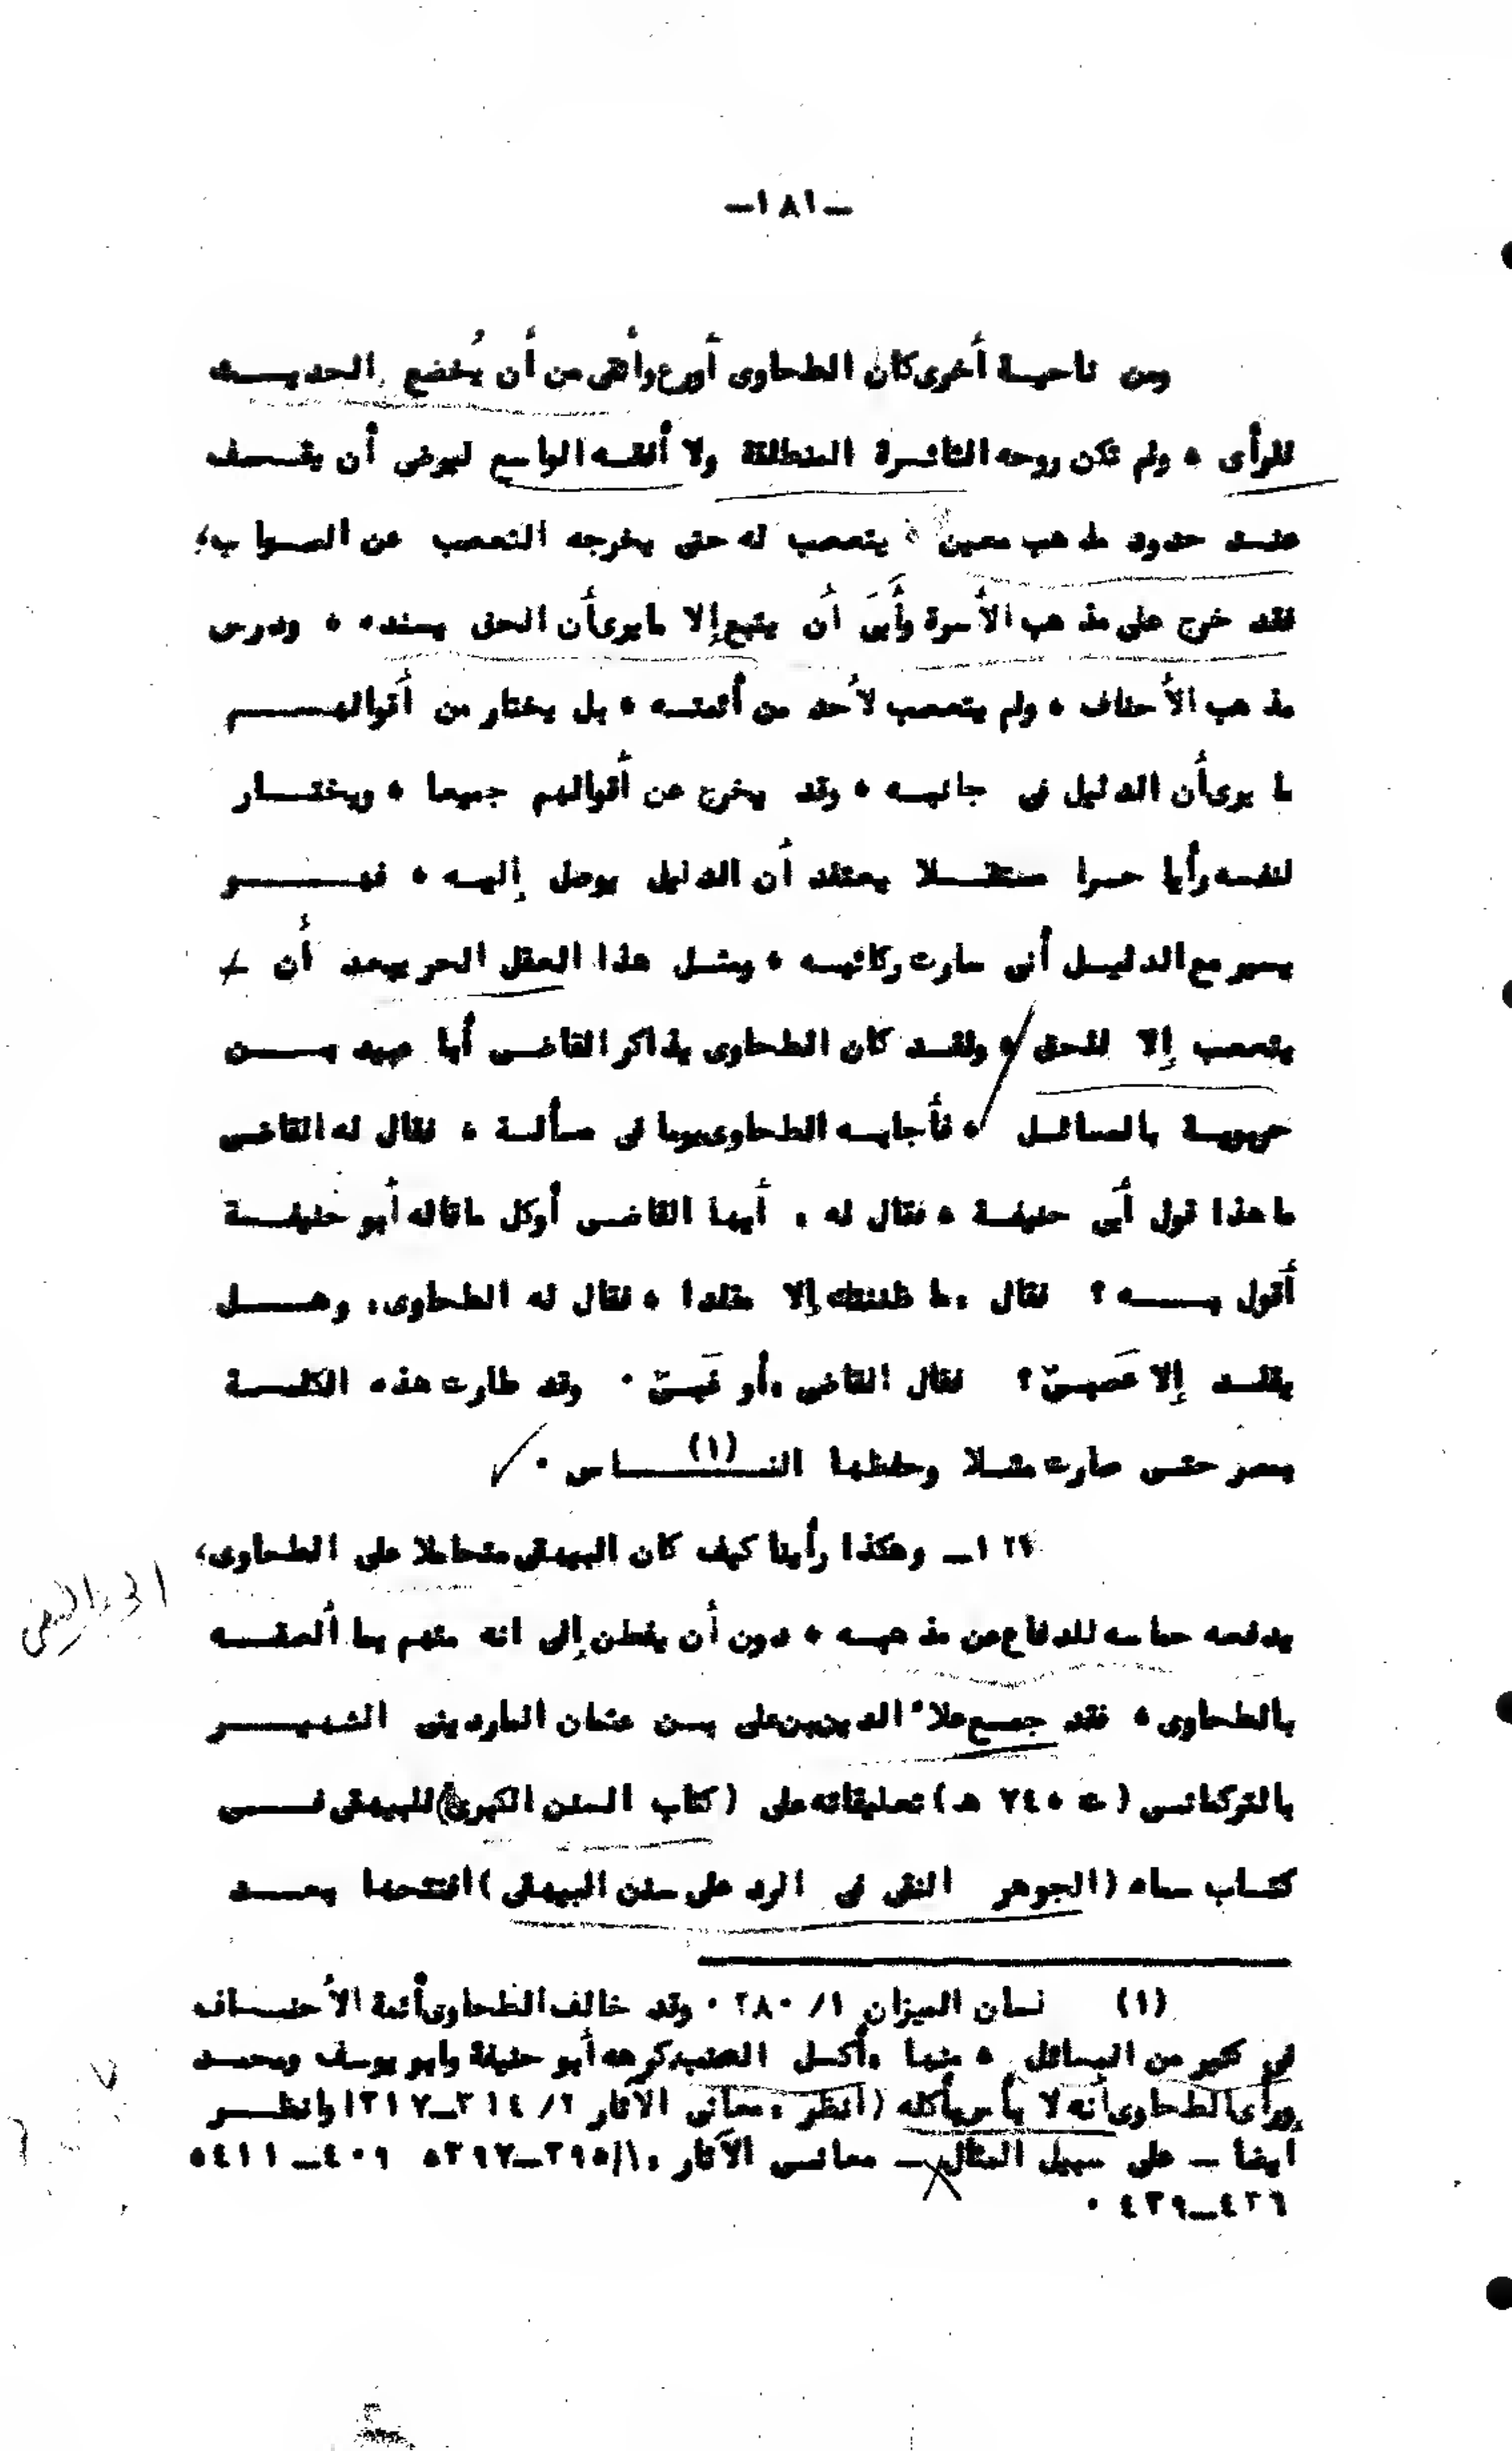 -١٨١-
ومن ناحيـة أخرى كان الطحاوى أورع وأتقى من أن يُخضع الحديـــث
للرأى ، ولم تكن روحه الثائـرة المنطلقة ولا أفقـه الواسع ليرضى أن يقــف
عنـد حدود مذهب معين ، يتعصب له حتى يخرجه التعصب عن الصـواب،
فقد خرج على مذهب الأسرة وأَبَى أن يتبع إلا ما يرى أن الحق يسنده ، ودرس
مذهب الأحناف ، ولم يتعصب لأحد من أئمتـه ، بل يختار من أقوالهـــــم
ما يرى أن الدليل فى جانبـه ، وقد يخرج عن أقوالهم جميعا ، ويختــار
لنفسه رأيا حـرا مستقــلا يعتقد أن الدليل يوصل إليـه ، فهـــــو
يسير مع الدليـل أنى سارت ركائبـه ، ومثـل هذا العقل الحر يبعد أن
يتعصب إلا للحق ، ولقـد كان الطحاوى يذاكر القاضـى أبا عبيد بـــن
حربويـة بالمسائـل ، فأجابـه الطحاوى يوما فى مسألـة ، فقال له القاضـى
ما هذا قول أبى حنيفـة ، فقال له . أيها القاضـى أوكل ما قاله أبو حنيفــة
أقول بــــه ؟ فقال . ما ظننتك إلا مقلدا ، فقال له الطحاوى، وهــــل
يقلـد إلا عَصبـىّ ؟ فقال القاضى . أو غَبـىّ . وقد طارت هذه الكلمــة
بمصر حتـى صارت مثـلا وحفظها النـــــاس (١) .
١٢٦ــ وهكذا رأينا كيف كان البيهقى متحاملا على الطحاوى،
يدفعه حماسه للدفاع عن مذهبـه ، دون أن يفطن إلى انه متهم بما ألصقــه
بالطحاوى ، فقد جمـع علاء الدين بن على بـن عثمان الماردينى الشهيــــر
بالتركمانـى ( ت ٧٤٥ هـ ) تعليقاته على ( كتاب السنن الكبرى) للبيهقى فـــى
كتـاب سماه ( الجوهر النقى فى الرد على سنن البيهقى ) افتتحها بعـــد
(١) لسان الميزان ١/ ٢٨٠ . وقد خالف الطحاوى أئمة الأحنــاف
فى كثير من المسائل ، منها . أكـل الضب كرهه أبو حنيفة وابو يوسف ومحمــد
ورأى الطحاوى أنه لا بأس بأكله ( انظر . معانى الآثار ٢/ ٣١٤ــ٣١٧) وانظـــر
أيضا - على سبيل المثال ــ معانـى الآثار . ١/ ٣٩٥ــ٣٩٧، ٤٠٩ــ٤١١،
٤٣٦ــ٤٣٩ .